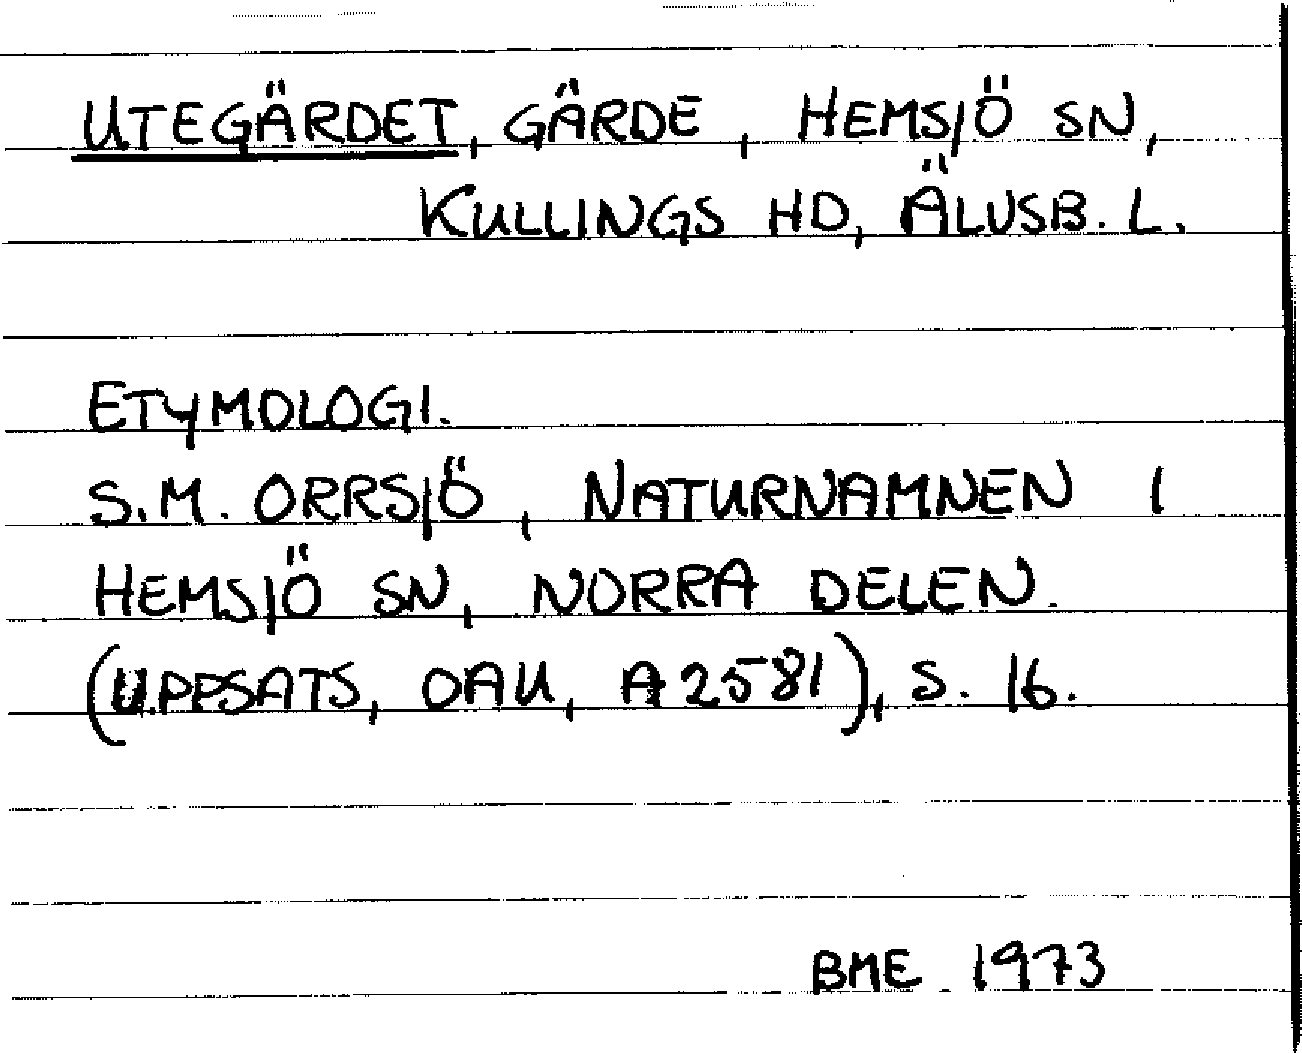 UTEGÄRDET, GÄRDE, HEMSJÖ SN,
KULLINGS HD, ÄLVSB. L.
ETYMOLOGI.
S.M. ORRSJÖ, NATURNAMNEN I
HEMSJÖ SN, NORRA DELEN.
(UPPSATS, OAU, A2581), S. 16.
BME 1973